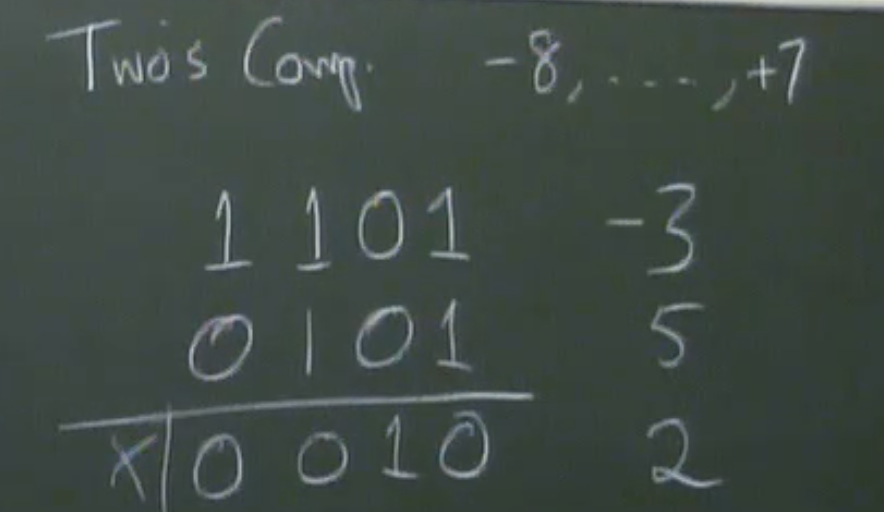 Two's Comp. -8, ...., +7
1 1 0 1 -3
0 1 0 1 5
X|0 0 1 0 2